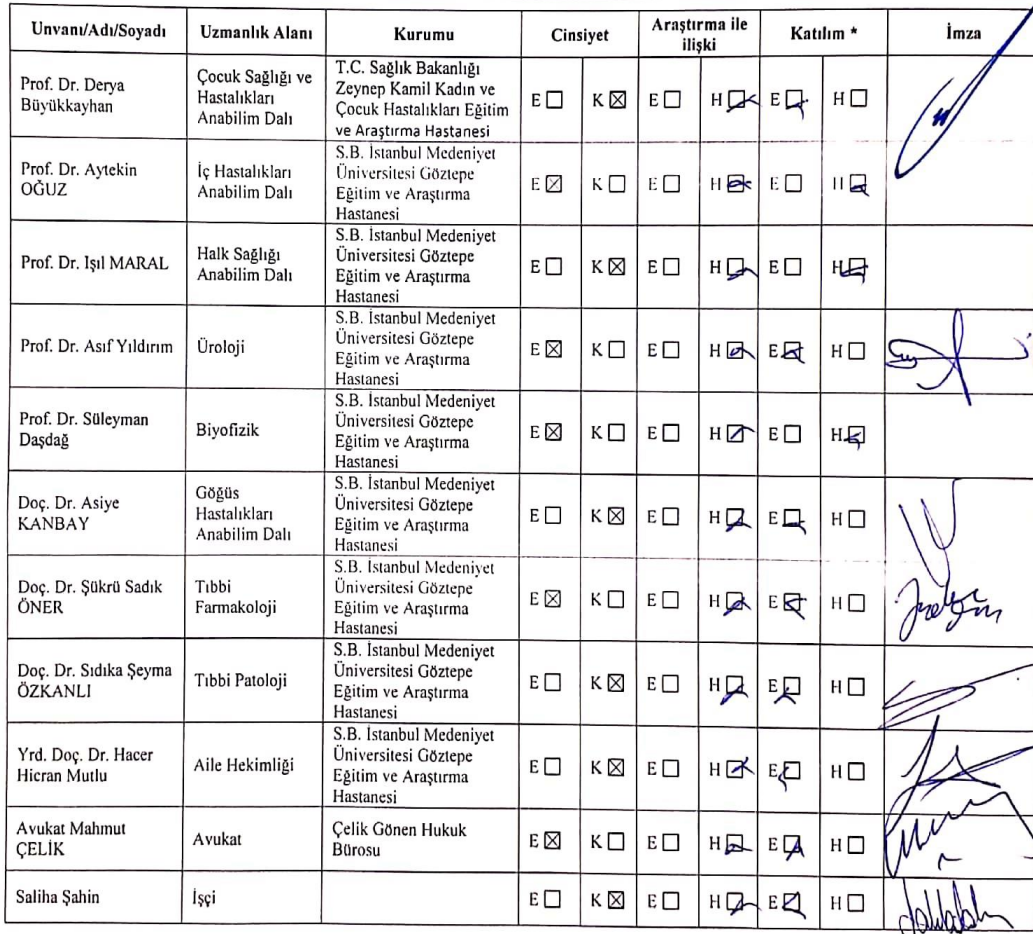 Unvanı/Adı/Soyadı Uzmanlık Alanı Kurumu Cinsiyet Araştırma ile ilişki Katılım * İmza
Prof. Dr. Derya
Büyükkayhan
Çocuk Sağlığı ve
Hastalıkları
Anabilim Dalı
T.C. Sağlık Bakanlığı
Zeynep Kamil Kadın ve
Çocuk Hastalıkları Eğitim
ve Araştırma Hastanesi
E K E H E H
Prof. Dr. Aytekin
OĞUZ
İç Hastalıkları
Anabilim Dalı
S.B. İstanbul Medeniyet
Üniversitesi Göztepe
Eğitim ve Araştırma
Hastanesi
E K E H E H
Prof. Dr. Işıl MARAL
Halk Sağlığı
Anabilim Dalı
S.B. İstanbul Medeniyet
Üniversitesi Göztepe
Eğitim ve Araştırma
Hastanesi
E K E H E H
Prof. Dr. Asıf Yıldırım
Üroloji
S.B. İstanbul Medeniyet
Üniversitesi Göztepe
Eğitim ve Araştırma
Hastanesi
E K E H E H
Prof. Dr. Süleyman
Daşdağ
Biyofizik
S.B. İstanbul Medeniyet
Üniversitesi Göztepe
Eğitim ve Araştırma
Hastanesi
E K E H E H
Doç. Dr. Asiye
KANBAY
Göğüs
Hastalıkları
Anabilim Dalı
S.B. İstanbul Medeniyet
Üniversitesi Göztepe
Eğitim ve Araştırma
Hastanesi
E K E H E H
Doç. Dr. Şükrü Sadık
ÖNER
Tıbbi
Farmakoloji
S.B. İstanbul Medeniyet
Üniversitesi Göztepe
Eğitim ve Araştırma
Hastanesi
E K E H E H
Doç. Dr. Sıdıka Şeyma
ÖZKANLI
Tıbbi Patoloji
S.B. İstanbul Medeniyet
Üniversitesi Göztepe
Eğitim ve Araştırma
Hastanesi
E K E H E H
Yrd. Doç. Dr. Hacer
Hicran Mutlu
Aile Hekimliği
S.B. İstanbul Medeniyet
Üniversitesi Göztepe
Eğitim ve Araştırma
Hastanesi
E K E H E H
Avukat Mahmut
ÇELİK
Avukat
Çelik Gönen Hukuk
Bürosu
E K E H E H
Saliha Şahin
İşçi
E K E H E H